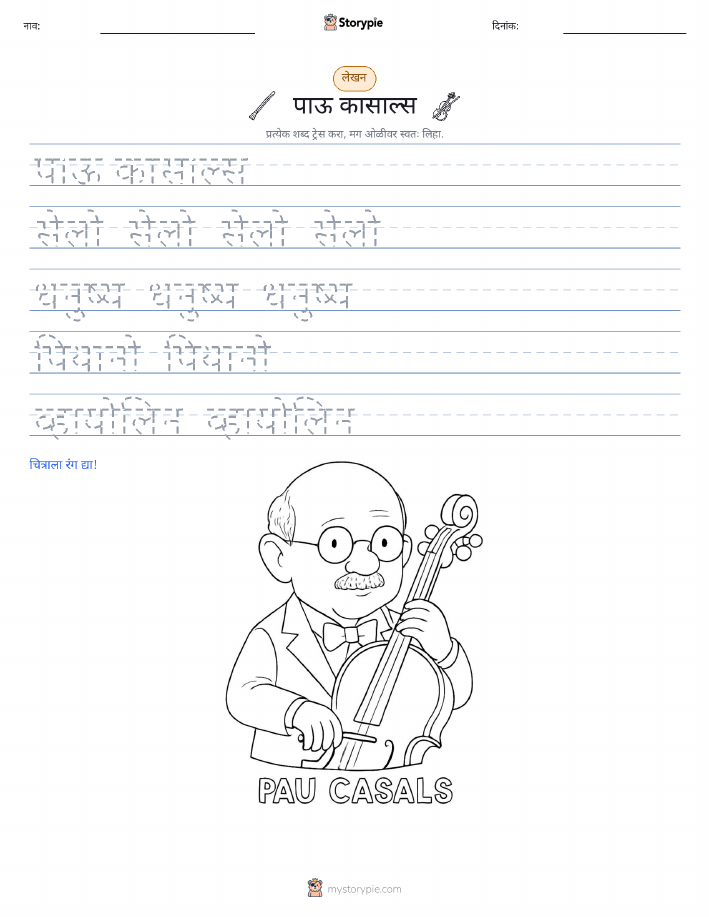 नाव:
Storypie
दिनांक:
लेखन
पाऊ कासाल्स
प्रत्येक शब्द ट्रेस करा, मग ओळीवर स्वतः लिहा.
पाऊ कासाल्स
सेलो सेलो सेलो सेलो
धनुष्य धनुष्य धनुष्य
पियानो पियानो
व्हायोलिन व्हायोलिन
चित्राला रंग द्या!
PAU CASALS
mystorypie.com